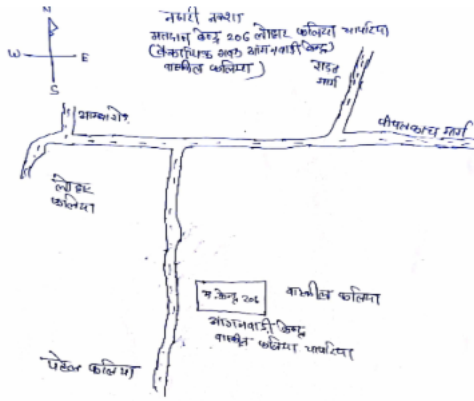 N
नजरी नक्शा
मतदान केन्द्र 206 लोहार फलिया चापरिया
(वैकल्पिक भवन आंगनवाडी केन्द्र)
वास्कील फलिया
W
E
S
मार्ग
मार्ग
लोहार
फलिया
म. केन्द्र 206
वास्कील फलिया
आंगनवाडी केन्द्र
वास्कील फलिया चापरिया
पटेल फलिया